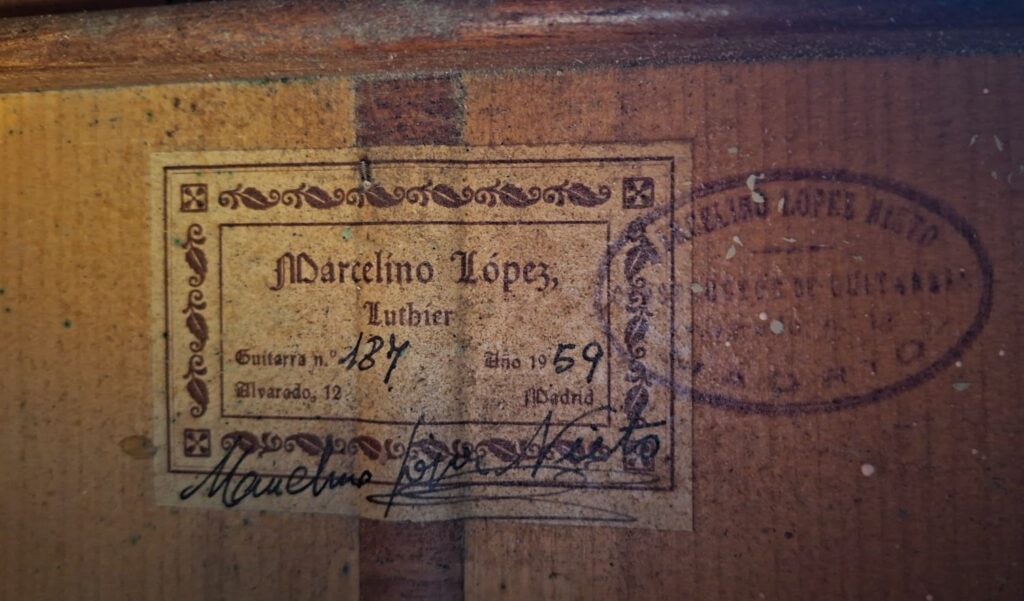 Marcelino López,
Luthier
Guitarra n.º 187
Año 1959
Alvarado, 12
Madrid
Marcelino López Nieto
MARCELINO LOPEZ NIETO
DE GUITARRAS
MADRID